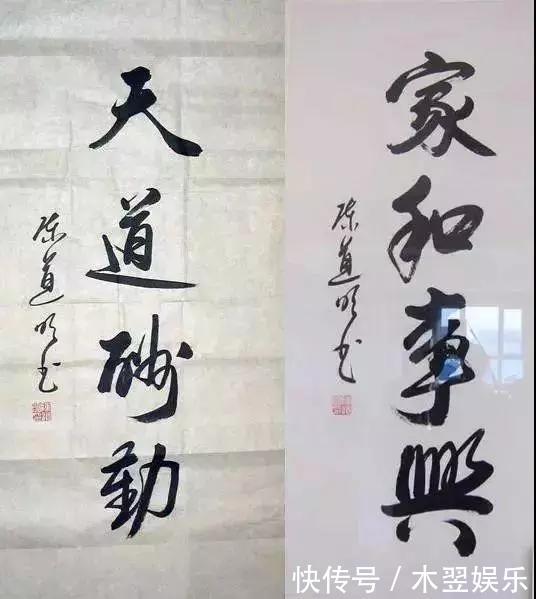 天道酬勤
陈道明书
家和事興
陈道明书
快传号 / 木翌娱乐